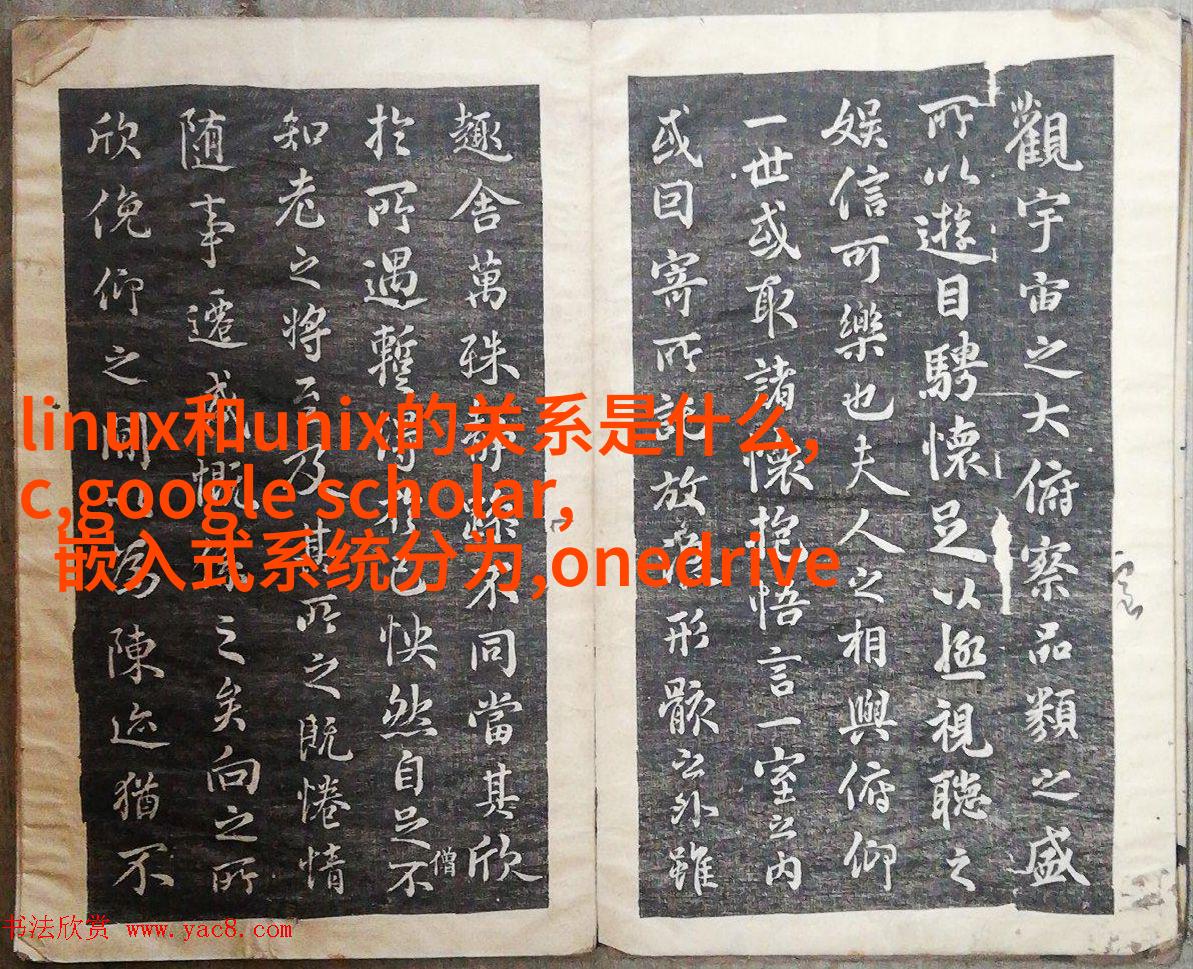 觀宇宙之大俯察品類之盛
所以遊目騁懷足以極視聽之
娛信可樂也夫人之相與俯仰
一世或取諸懷抱悟言一室之內
或因寄所託放浪形骸之外雖
趣舍萬殊靜躁不同當其欣
於所遇暫得於己怏然自足不
僧
知老之將至及其所之既惓情
隨事遷感慨係之矣向之所
欣俛仰之間以為陳迹猶不
linux和unix的关系是什么,
c,google scholar,
嵌入式系统分为,onedrive
书法欣赏 www.yac8.com